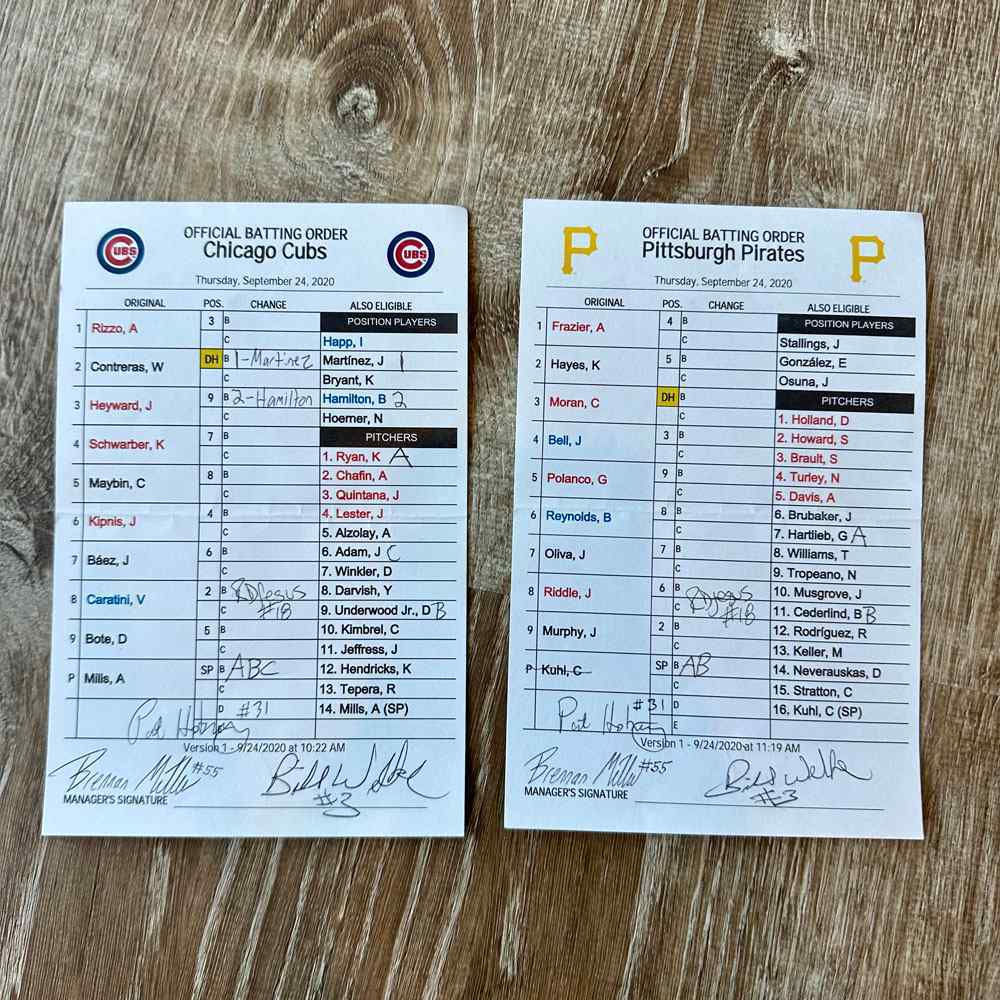 CUBS
OFFICIAL BATTING ORDER
Chicago Cubs
CUBS
Thursday, September 24, 2020
ORIGINAL POS. CHANGE ALSO ELIGIBLE
1 Rizzo, A 3 B POSITION PLAYERS
C Happ, I
2 Contreras, W DH B 1-Martinez Martínez, J 1
C Bryant, K
3 Heyward, J 9 B 2-Hamilton Hamilton, B 2
C Hoerner, N
4 Schwarber, K 7 B PITCHERS
C 1. Ryan, K A
5 Maybin, C 8 B 2. Chafin, A
C 3. Quintana, J
6 Kipnis, J 4 B 4. Lester, J
C 5. Alzolay, A
7 Báez, J 6 B 6. Adam, J C
C 7. Winkler, D
8 Caratini, V 2 B RDJesus 8. Darvish, Y
C #18 9. Underwood Jr., D B
9 Bote, D 5 B 10. Kimbrel, C
C 11. Jeffress, J
P Mills, A SP B ABC 12. Hendricks, K
C 13. Tepera, R
D #31 14. Mills, A (SP)
Pat Hoberg
Version 1 - 9/24/2020 at 10:22 AM
Brennan Miller #55 Bill Welke
#3
MANAGER'S SIGNATURE
P
OFFICIAL BATTING ORDER
Pittsburgh Pirates
P
Thursday, September 24, 2020
ORIGINAL POS. CHANGE ALSO ELIGIBLE
1 Frazier, A 4 B POSITION PLAYERS
C Stallings, J
2 Hayes, K 5 B González, E
C Osuna, J
3 Moran, C DH B PITCHERS
C 1. Holland, D
4 Bell, J 3 B 2. Howard, S
C 3. Brault, S
5 Polanco, G 9 B 4. Turley, N
C 5. Davis, A
6 Reynolds, B 8 B 6. Brubaker, J
C 7. Hartlieb, G A
7 Oliva, J 7 B 8. Williams, T
C 9. Tropeano, N
8 Riddle, J 6 B RDJesus 10. Musgrove, J
C #18 11. Cederlind, B B
9 Murphy, J 2 B 12. Rodríguez, R
C 13. Keller, M
P Kuhl, C SP B AB 14. Neverauskas, D
C 15. Stratton, C
#31 D 16. Kuhl, C (SP)
Pat Hoberg E
Version 1 - 9/24/2020 at 11:19 AM
Brennan Miller #55 Bill Welke
#3
MANAGER'S SIGNATURE